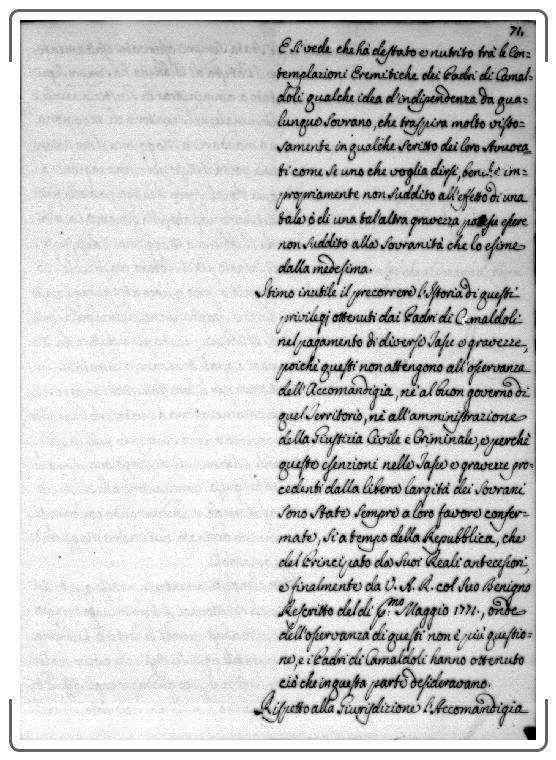 71.
E si vede che hà destato e nutrito trà le Con=
templazioni Eremitiche dei Padri di Camal=
doli qualche idea d'indipendenza da qua=
lunque Sovrano, che traspira molto visto=
samente in qualche scritto dei loro Avvoca
ti come se uno che voglia dirsi, benche im=
propriamente non suddito all'effetto di una
tale ò di una tal'altra gravezza potesse essere
non suddito alla Sovranità che lo esime
dalla medesima.
Stimo inutile il precorrere l'Istoria di questi
privilegj ottenuti dai Padri di Camaldoli
nel pagamento di diverse Tasse e gravezze,
poichè questi non attengono all'osservanza
dell'Accomandigia, nè al buon governo di
quel Territorio, nè all'amministrazione
della Giustizia Civile e Criminale, e perchè
queste esenzioni nelle Tasse e gravezze pro=
cedenti dalla libera largità dei Sovrani
sono state sempre a loro favore confer=
mate, si a tempo della Repubblica, che
del Principato da Suoi Reali antecessori,
e finalmente da V. A. R. col suo Benigno
Rescritto del dì 6.mo Maggio 1771., onde
dell'osservanza di questi non è più questio=
ne, e i Padri di Camaldoli hanno ottenuto
ciò che in questa parte desideravano.
Rispetto alla Giurisdizione l'Accomandigia